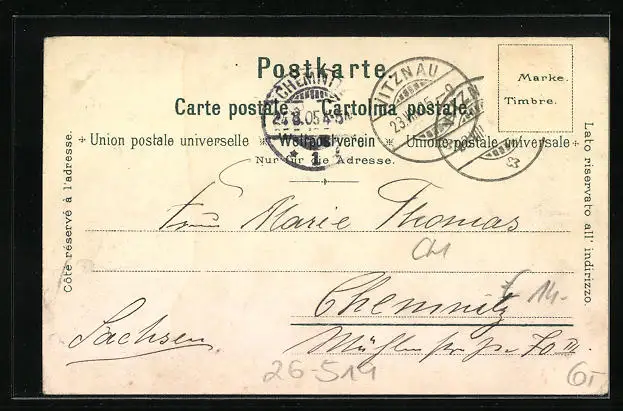 Postkarte.
Carte postale. Cartolina postale.
Union postale universelle * Weltpostverein * Unione postale universale
Nur für die Adresse.
Marke.
Timbre.
Côté réservé à l'adresse.
Lato riservato all' indirizzo.
CHEMNITZ
24.8.05.
1
VITZNAU
23.VIII.05.-9
Frau Marie Thomas
CH
Chemnitz
14.-
Sachsen
70 III.
26-514